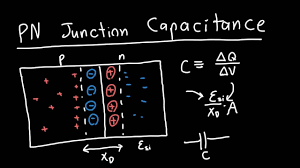 PN Junction Capacitance
p n
C ≡ ΔQ / ΔV
Esi / XD · A
XD Esi
C